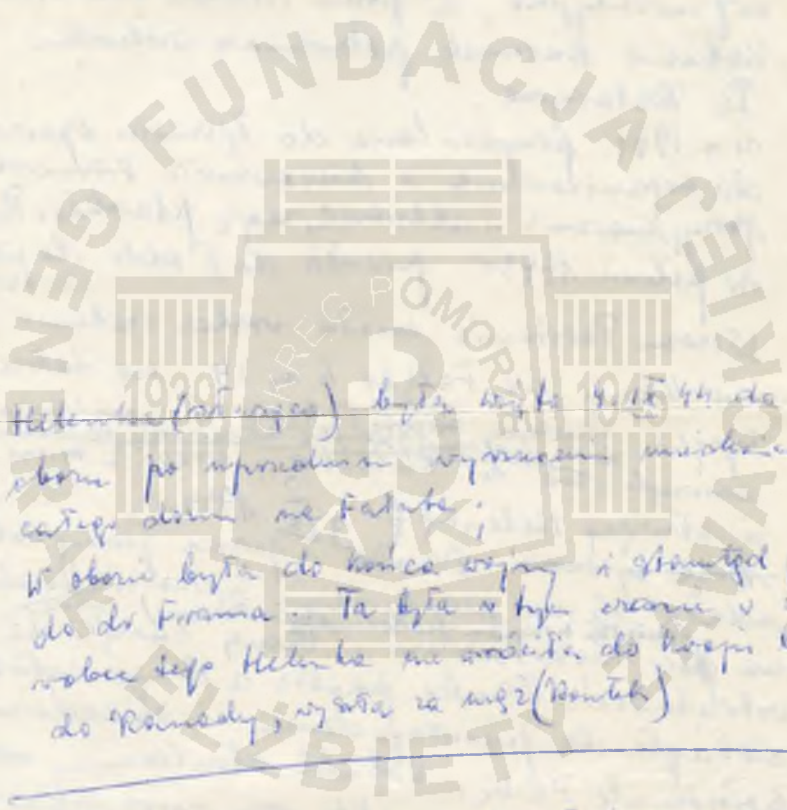 FUNDACJA GENERAŁ ELŻBIETY ZAWACKIEJ
OKRĘG POMORZE
1939 1945
AK
Helenka (służąca) była wzięta 4.IX 44 do
obozu po uprzednim wyrzuceniu mieszkańców
całego domu na
W obozie była do końca wojny i stamtąd
do dr Ta była w tym czasie w
wobec tego Helenka nie wróciła do kraju
do Kanady, wyszła za mąż